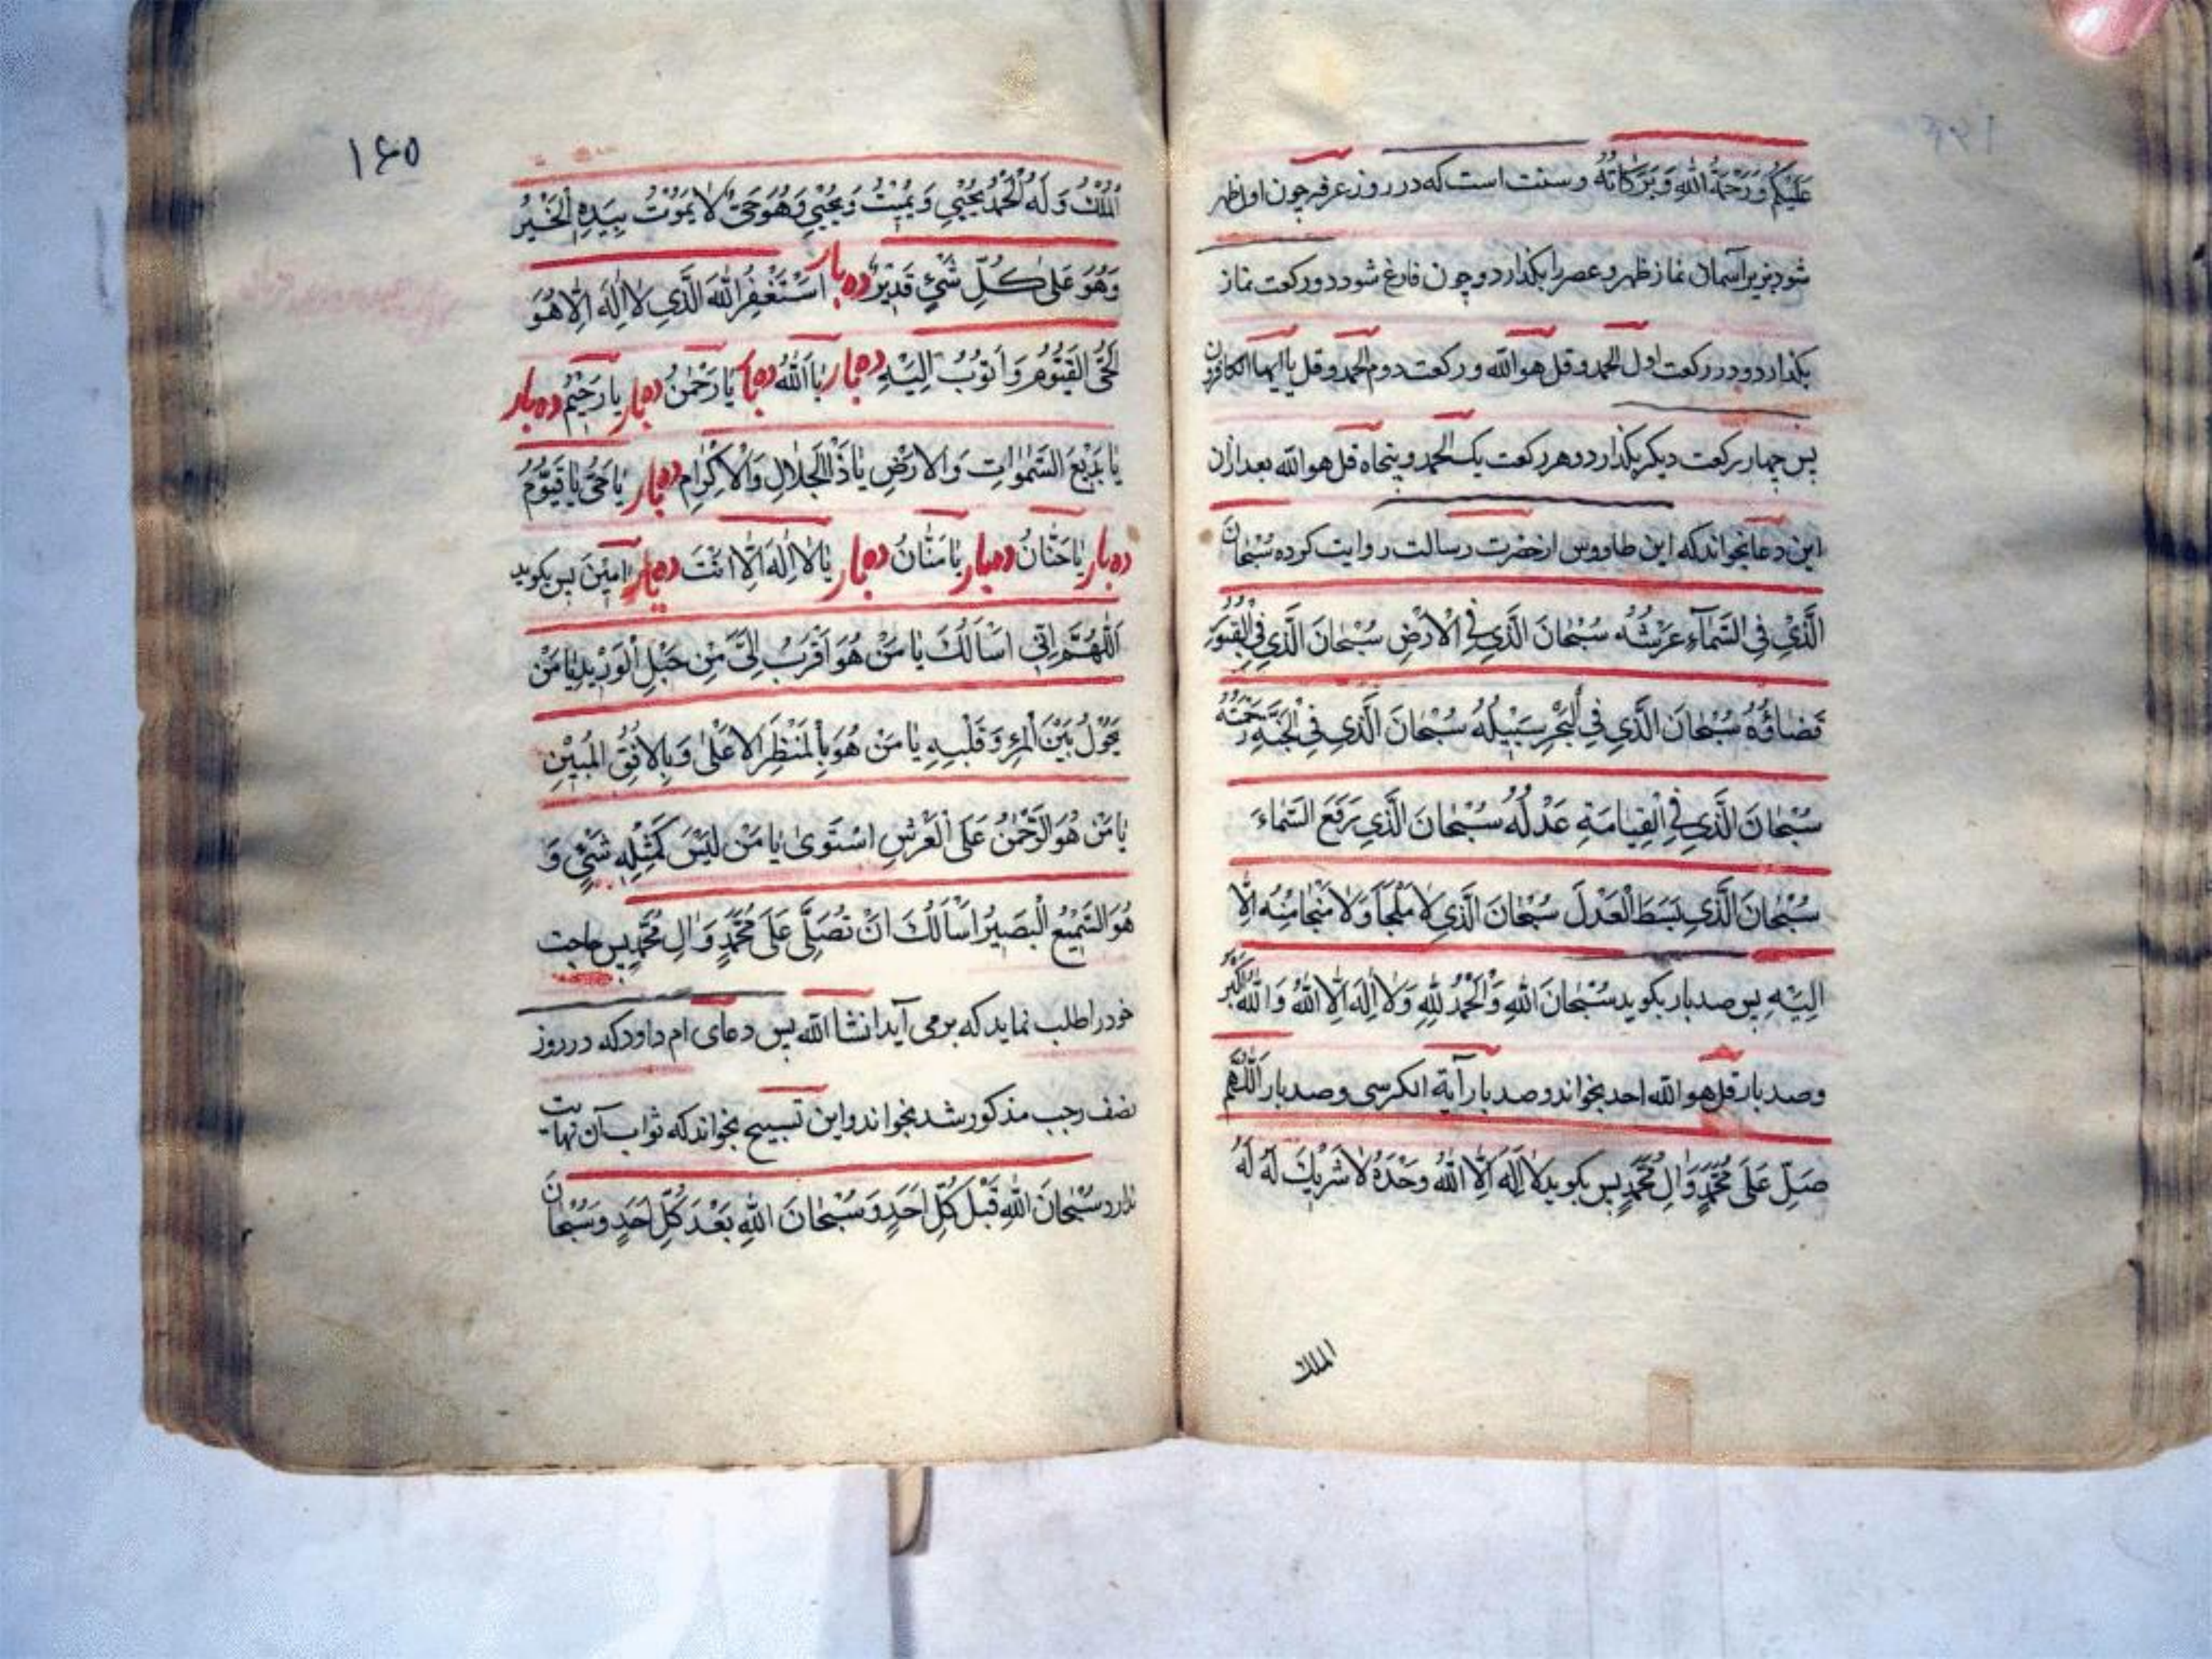 عَلَيْكُم وَرَحْمَةُ اللهِ وَبَرَكَاتُهُ وسنت است که در روز عرفه چون اول ظهر
شود بزیر آسمان نماز ظهر و عصر را بگذارد و چون فارغ شود دو رکعت نماز
بگذارد و در رکعت اول الحمد و قل هو الله و رکعت دوم الحمد و قل یا ایها الکافرون
پس چهار رکعت دیگر بگذارد و هر رکعت یک الحمد و پنجاه قل هو الله بعد ازان
این دعا بخواند که ابن طاووس از حضرت رسالت روایت کرده سُبْحَانَ
الَّذِي فِي السَّمَآءِ عَرْشُهُ سُبْحَانَ الَّذِي فِي الْأَرْضِ سُبْحَانَ الَّذِي فِي الْقُبُورِ
قَضَاؤُهُ سُبْحَانَ الَّذِي فِي الْبَحْرِ سَبِيلُهُ سُبْحَانَ الَّذِي فِي الْجَنَّةِ رَحْمَتُهُ
سُبْحَانَ الَّذِي فِي الْقِيَامَةِ عَدْلُهُ سُبْحَانَ الَّذِي رَفَعَ السَّمَاءَ
سُبْحَانَ الَّذِي بَسَطَ الْعَدْلَ سُبْحَانَ الَّذِي لَا مَلْجَأَ وَلَا مَنْجَا مِنْهُ إِلَّا
إِلَيْهِ پس صد بار بگوید سُبْحَانَ اللهِ وَالْحَمْدُ لِلّٰهِ وَلَا إِلٰهَ إِلَّا اللهُ وَاللهُ أَكْبَرُ
وصد بار قل هو الله احد بخواند و صد بار آیة الکرسی و صد بار اَللّٰهُمَّ
صَلِّ عَلَى مُحَمَّدٍ وَآلِ مُحَمَّدٍ پس بگوید لَا إِلٰهَ إِلَّا اللهُ وَحْدَهُ لَا شَرِيكَ لَهُ لَهُ
الملك
۱۶۵
الْمُلْكُ وَلَهُ الْحَمْدُ يُحْيِي وَيُمِيتُ وَيُمِيتُ وَيُحْيِي وَهُوَ حَيٌّ لَا يَمُوتُ بِيَدِهِ الْخَيْرُ
وَهُوَ عَلَى كُلِّ شَيْءٍ قَدِيرٌ ده بار اَسْتَغْفِرُ اللهَ الَّذِي لَا إِلٰهَ إِلَّا هُوَ
الْحَيُّ الْقَيُّومُ وَأَتُوبُ إِلَيْهِ ده بار يَا اَللهُ ده بار يَا رَحْمٰنُ ده بار يَا رَحِيمُ ده بار
يَا بَدِيعَ السَّمٰوَاتِ وَالْأَرْضِ يَا ذَا الْجَلَالِ وَالْإِكْرَامِ ده بار يَا حَيُّ يَا قَيُّومُ
ده بار يَا حَنَّانُ ده بار يَا مَنَّانُ ده بار يَا لَا إِلٰهَ إِلَّا اَنْتَ ده بار اٰمِينَ پس بگوید
اَللّٰهُمَّ اِنِّي اَسْأَلُكَ يَا مَنْ هُوَ اَقْرَبُ اِلَيَّ مِنْ حَبْلِ الْوَرِيدِ يَا مَنْ
يَحُولُ بَيْنَ الْمَرْءِ وَقَلْبِهِ يَا مَنْ هُوَ بِالْمَنْظَرِ الْأَعْلَى وَبِالْأُفُقِ الْمُبِينِ
يَا مَنْ هُوَ الرَّحْمٰنُ عَلَى الْعَرْشِ اسْتَوٰى يَا مَنْ لَيْسَ كَمِثْلِهِ شَيْءٌ وَ
هُوَ السَّمِيعُ الْبَصِيرُ اَسْأَلُكَ اَنْ تُصَلِّيَ عَلَى مُحَمَّدٍ وَاٰلِ مُحَمَّدٍ پس حاجت
خود را طلب نماید که بر می آید انشا الله پس دعای ام داود که در روز
نصف رجب مذکور شد بخواند و این تسبیح بخواند که ثواب آن نهایت
ندارد سُبْحَانَ اللهِ قَبْلَ كُلِّ اَحَدٍ وَسُبْحَانَ اللهِ بَعْدَ كُلِّ اَحَدٍ وَسُبْحَانَ